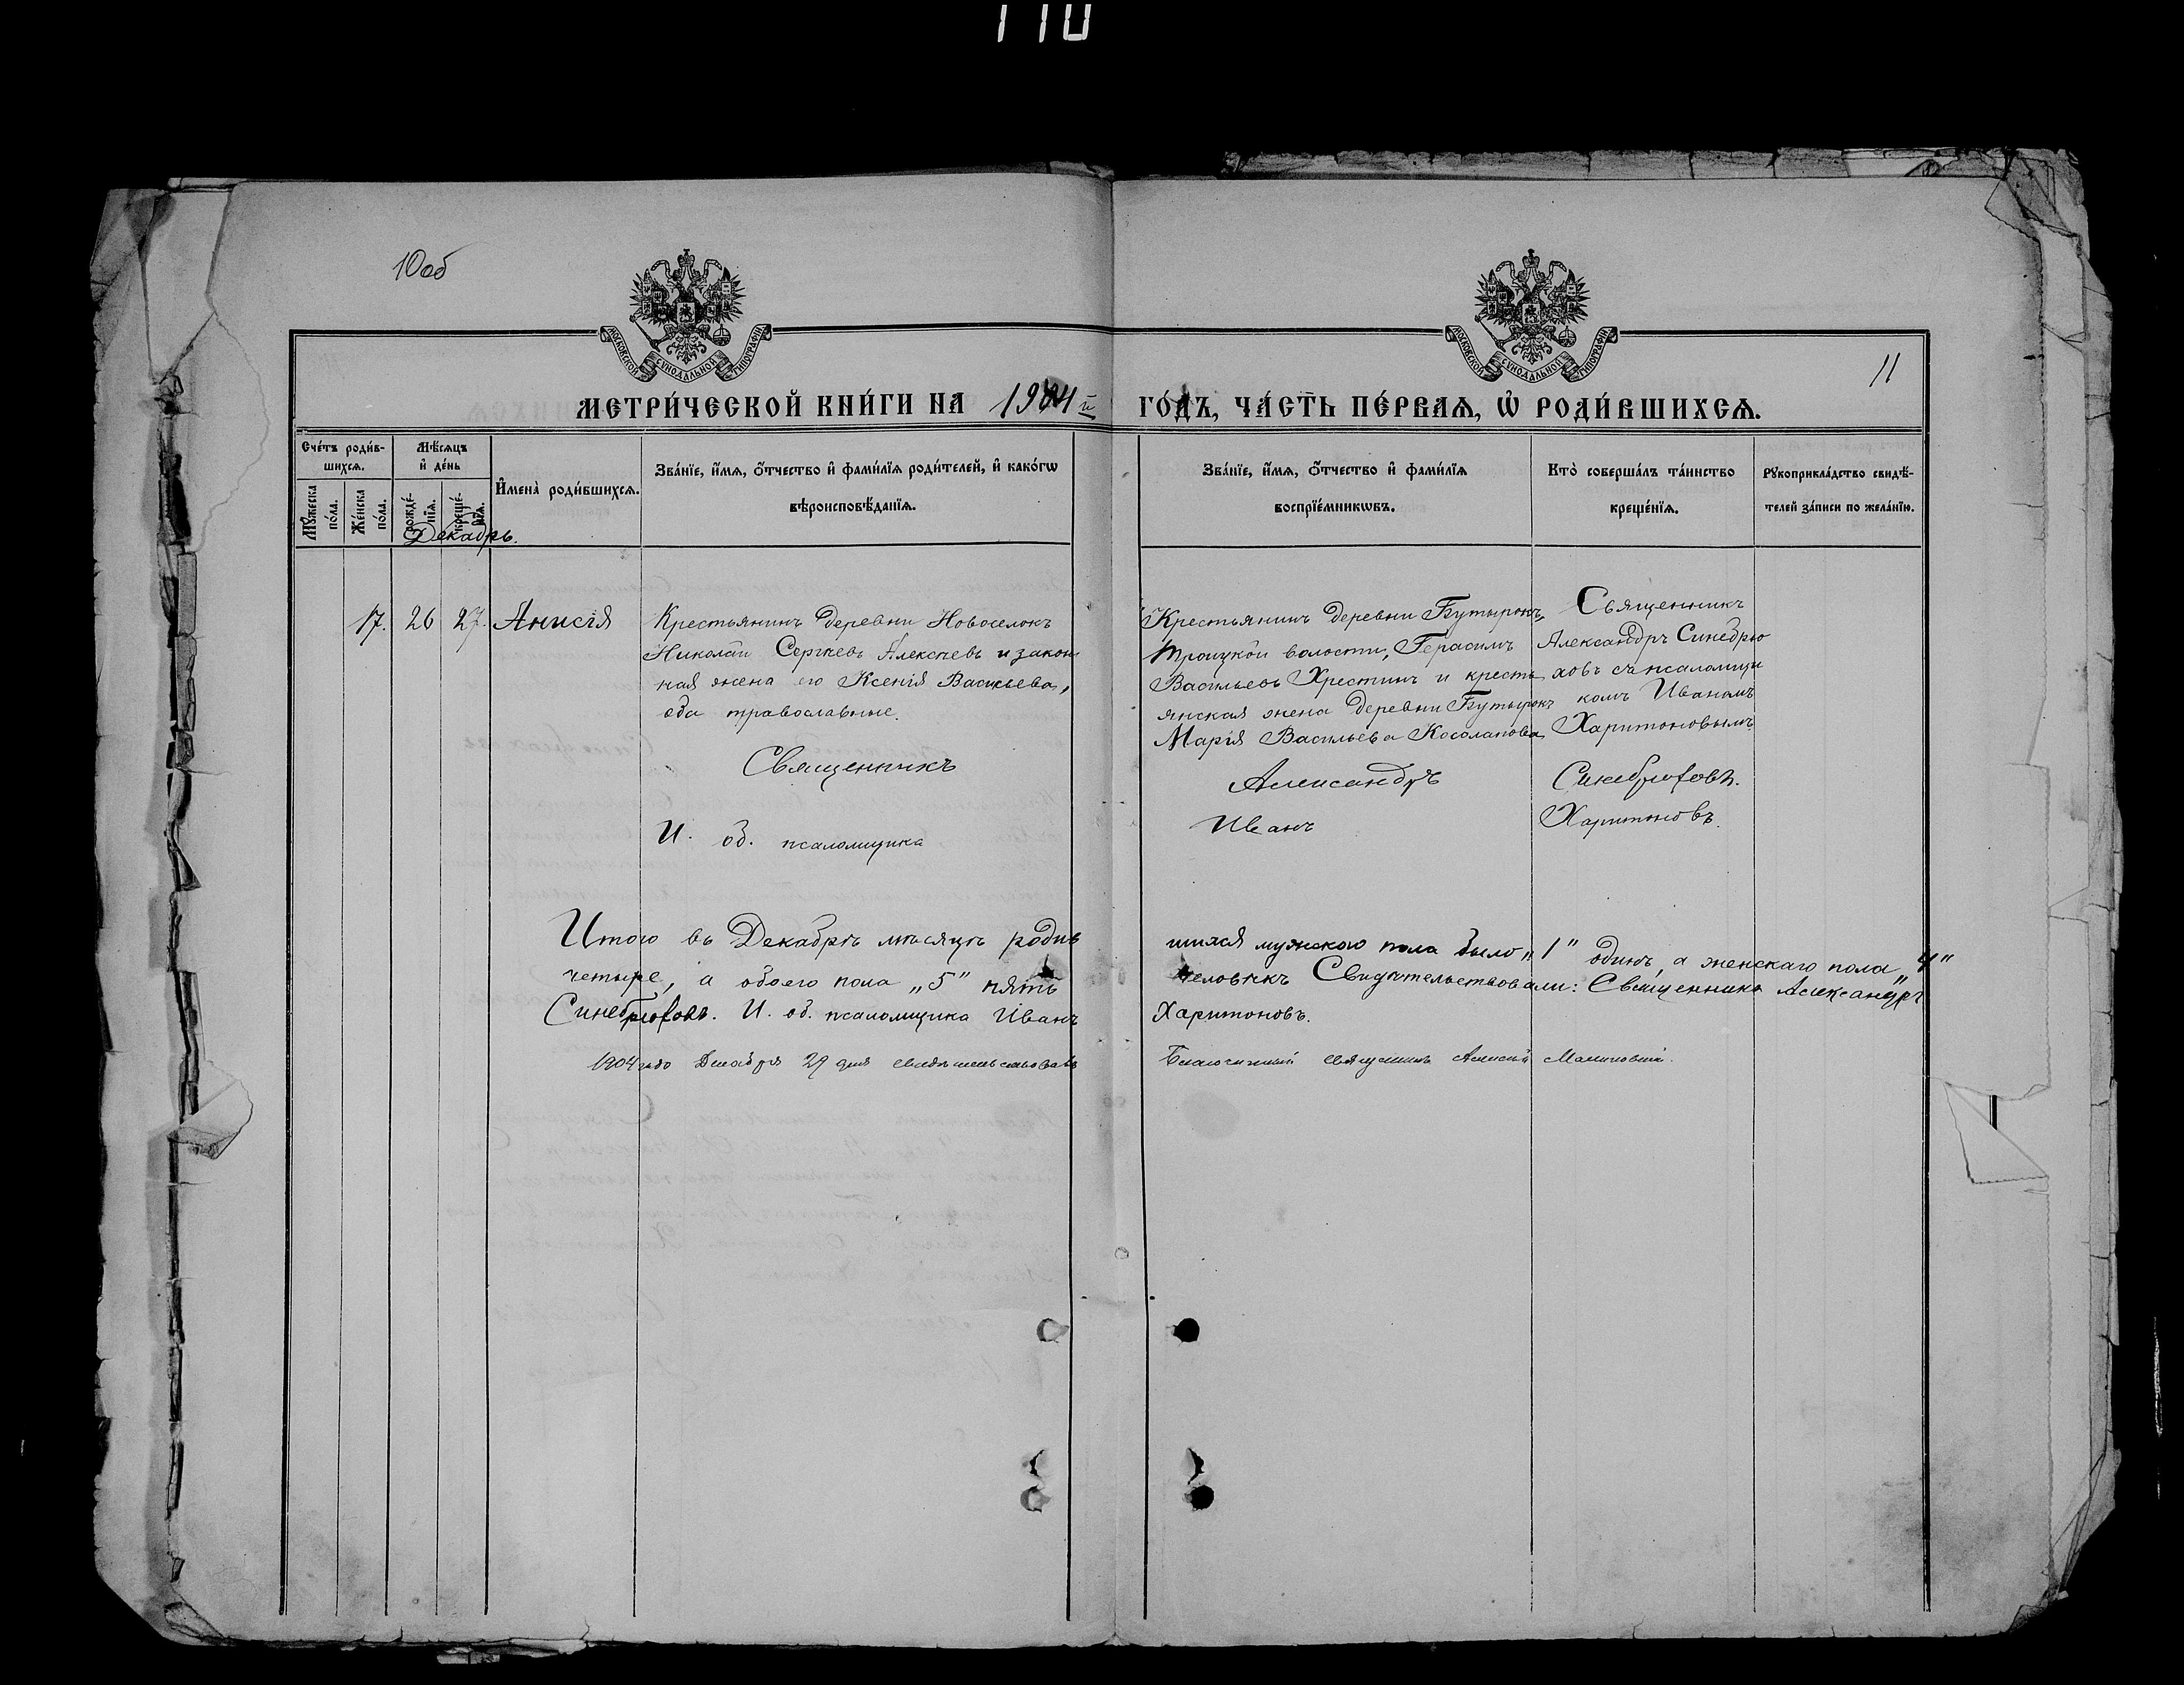 110
10об
МОСКОВСКОЙ СѴНОДАЛЬНОЙ ТИПОГРАФІИ
МОСКОВСКОЙ СѴНОДАЛЬНОЙ ТИПОГРАФІИ
11
МЕТРИ́ЧЕСКОЙ КНИ́ГИ НА 1904й ГО́ДЪ, ЧА́СТЬ ПЕ́РВАѦ, Ѡ҆ РОДИ́ВШИХСѦ.
Сче́тъ роди́в-
шихсѧ.
Мꙋ́жеска по́ла.
Же́нска по́ла.
Мѣ́сѧцъ
и҆ де́нь
рожде́-
нїѧ.
креще́-
нїѧ.
И҆мена̀ роди́вшихсѧ.
Зва́нїе, и҆́мѧ, ѻ҆́тчество и҆ фами́лїѧ роди́телей, и҆ како́гѡ
вѣроисповѣ́данїѧ.
Зва́нїе, и҆́мѧ, ѻ҆́тчество и҆ фами́лїѧ
воспрїе́мникѡвъ.
Кто̀ соверша́лъ та́инство
креще́нїѧ.
Рꙋкоприкла́дство свидѣ́-
телей за́писи по жела́нїю.
Декабрь.
17. 26 27. Анисія
Крестьянинъ деревни Новоселокъ
Николай Сергѣевъ Алексѣевъ и закон
ная жена его Ксенія Васильева,
оба православные.
Крестьянинъ деревни Бутырокъ,
Троицкой волости, Герасимъ
Васильевъ Хрестинъ и кресть
янская жена деревни Бутырокъ
Марія Васильева Косолапова
Священникъ
Александръ Синебрю
ховъ съ псаломщи
комъ Иваномъ
Харитоновымъ.
Священникъ Александръ Синебрюховъ.
И. об. псаломщика Иванъ Харитоновъ.
Итого въ Декабрѣ мѣсяцѣ родив шихся мужского пола было „1" одинъ, а женскаго пола „4"
четыре, а обоего пола „5" пять человѣкъ Свидѣтельствовали: Священникъ Александръ
Синебрюховъ. И. об. псаломщика Иванъ Харитоновъ.
1904 года Декабря 29 дня свидѣтельствовалъ Благочинный священникъ Алексій Малиновскій.